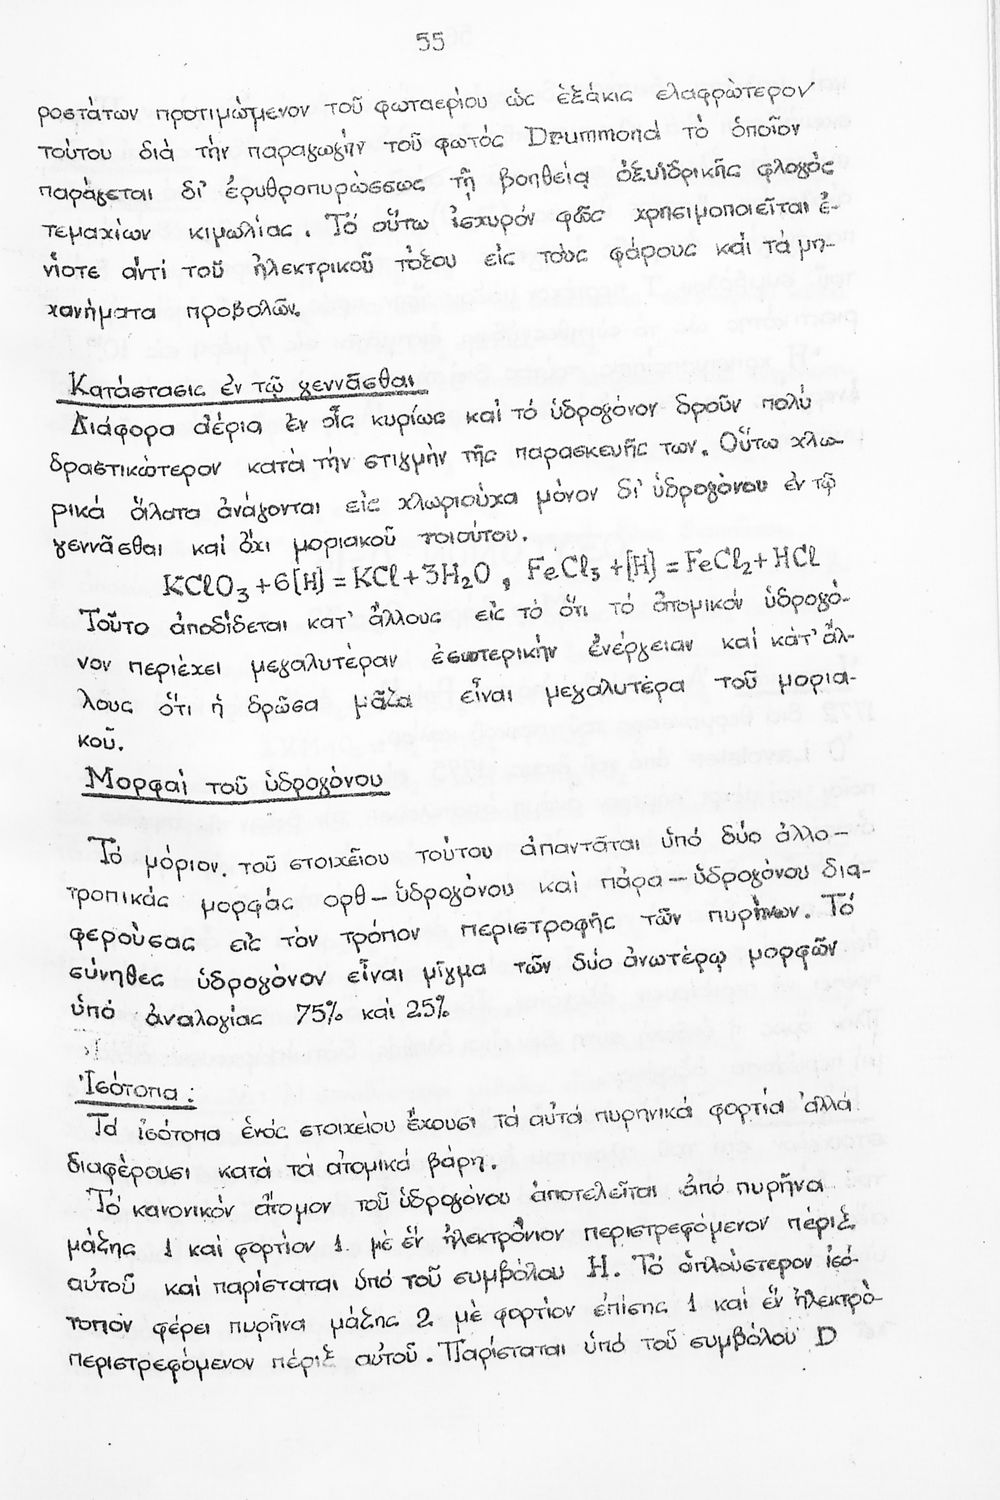 55
ροστάτων προτιμώμενον τοῦ φωταερίου ὡς ἑξάκις ελαφρώτερον
τούτου διά τήν παραγωγήν τοῦ φωτός Drummond τό ὁποῖον
παράγεται δι' ἐρυθροπυρώσεως τῇ βοηθείᾳ ὀξυϊδρικῆς φλογός
τεμαχίων κιμωλίας. Τό οὕτω ἰσχυρόν φῶς χρησιμοποιεῖται ἐ-
νίοτε αντί τοῦ ἠλεκτρικοῦ τόξου εἰς τούς φάρους καί τά μη-
χανήματα προβολῶν.
Κατάστασις ἐν τῷ γεννᾶσθαι
Διάφορα ἀέρια ἐν οἷς κυρίως καί τό ὑδρογόνον δροῦν πολύ
δραστικώτερον κατά τήν στιγμήν τῆς παρασκευῆς των. Οὕτω χλω-
ρικά ἅλατα ἀνάγονται εἰς χλωριούχα μόνον δι' ὑδρογόνου ἐν τῷ
γεννᾶσθαι καί ὄχι μοριακοῦ τοιούτου.
KClO₃+6[H]=KCl+3H₂O, FeCl₃+[H]=FeCl₂+HCl
Τοῦτο ἀποδίδεται κατ' ἄλλους εἰς τό ὅτι τό ἀτομικόν ὑδρογό-
νον περιέχει μεγαλυτέραν ἐσωτερικήν ἐνέργειαν καί κατ' ἄλ-
λους ὅτι ἡ δρῶσα μᾶζα εἶναι μεγαλυτέρα τοῦ μορια-
κοῦ.
Μορφαί τοῦ ὑδρογόνου
Τό μόριον. τοῦ στοιχείου τούτου ἀπαντᾶται ὑπό δύο ἀλλο-
τροπικάς μορφάς ορθ-ὑδρογόνου καί πάρα-ὑδρογόνου δια-
φερούσας εἰς τόν τρόπον περιστροφῆς τῶν πυρήνων. Τό
σύνηθες ὑδρογόνον εἶναι μῖγμα τῶν δύο ἀνωτέρῳ μορφῶν
ὑπό ἀναλογίας 75% καί 25%
Ἰσότοπα:
Τά ἰσότοπα ἑνός στοιχείου ἔχουσι τά αὐτά πυρηνικά φορτία ἀλλά
διαφέρουσι κατά τά ατομικά βάρη.
Τό κανονικόν ἄτομον τοῦ ὑδρογόνου ἀποτελεῖται ἀπό πυρῆνα
μάζης 1 καί φορτίον 1 μέ ἕν ἠλεκτρόνιον περιστρεφόμενον πέριξ
αὐτοῦ καί παρίσταται ὑπό τοῦ συμβόλου H. Τό ἁπλούστερον ἰσό-
τοπον φέρει πυρῆνα μάζης 2 μέ φορτίον ἐπίσης 1 καί ἕν ἠλεκτρό-
περιστρεφόμενον πέριξ αὐτοῦ. Παρίσταται ὑπό τοῦ συμβόλου D